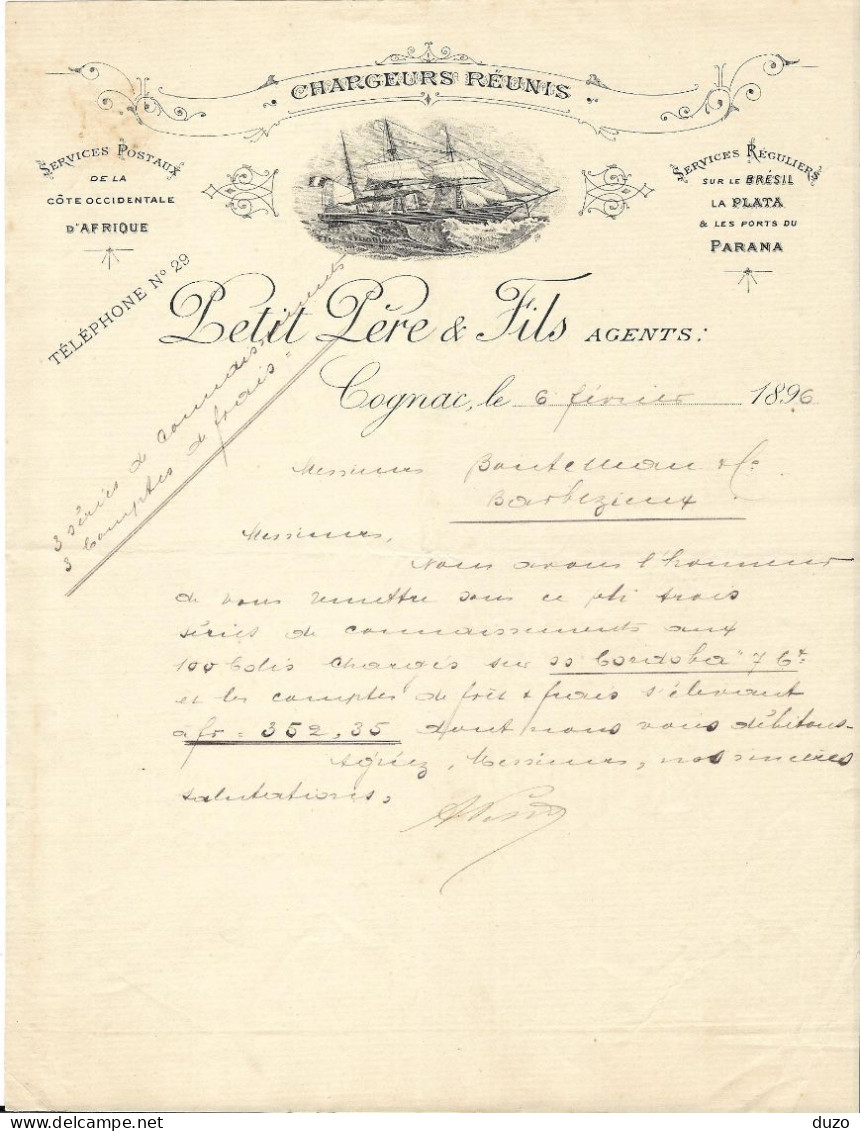 CHARGEURS RÉUNIS
SERVICES POSTAUX
DE LA
CÔTE OCCIDENTALE
D'AFRIQUE
SERVICES RÉGULIERS
SUR LE BRÉSIL
LA PLATA
& LES PORTS DU
PARANA
TÉLÉPHONE Nº 29
Petit Père & Fils AGENTS:
Cognac, le 6 février 1896
3 séries de connaissements
3 Comptes de frais
Messieurs Boutelleau & Co
Barbezieux
Messieurs,
Nous avons l'honneur
de vous remettre sous ce pli trois
séries de connaissements aux
100 Colis chargés sur SS Cordoba" 7 Ct
et les comptes de frêt & frais s'élevant
à fr = 352,35 dont nous vous débitons-
Agréez, Messieurs, nos sincères
salutations,
duzo